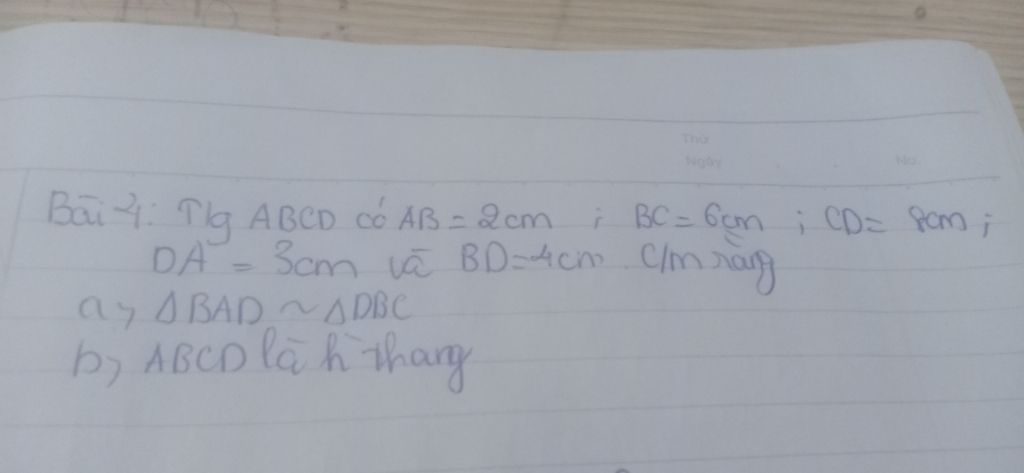 Thứ
Ngày No.
Bài 4: T/g ABCD có AB = 2cm ; BC = 6cm ; CD = 8cm ;
DA = 3cm và BD = 4cm C/m rằng
a, ΔBAD ~ ΔDBC
b, ABCD là h thang